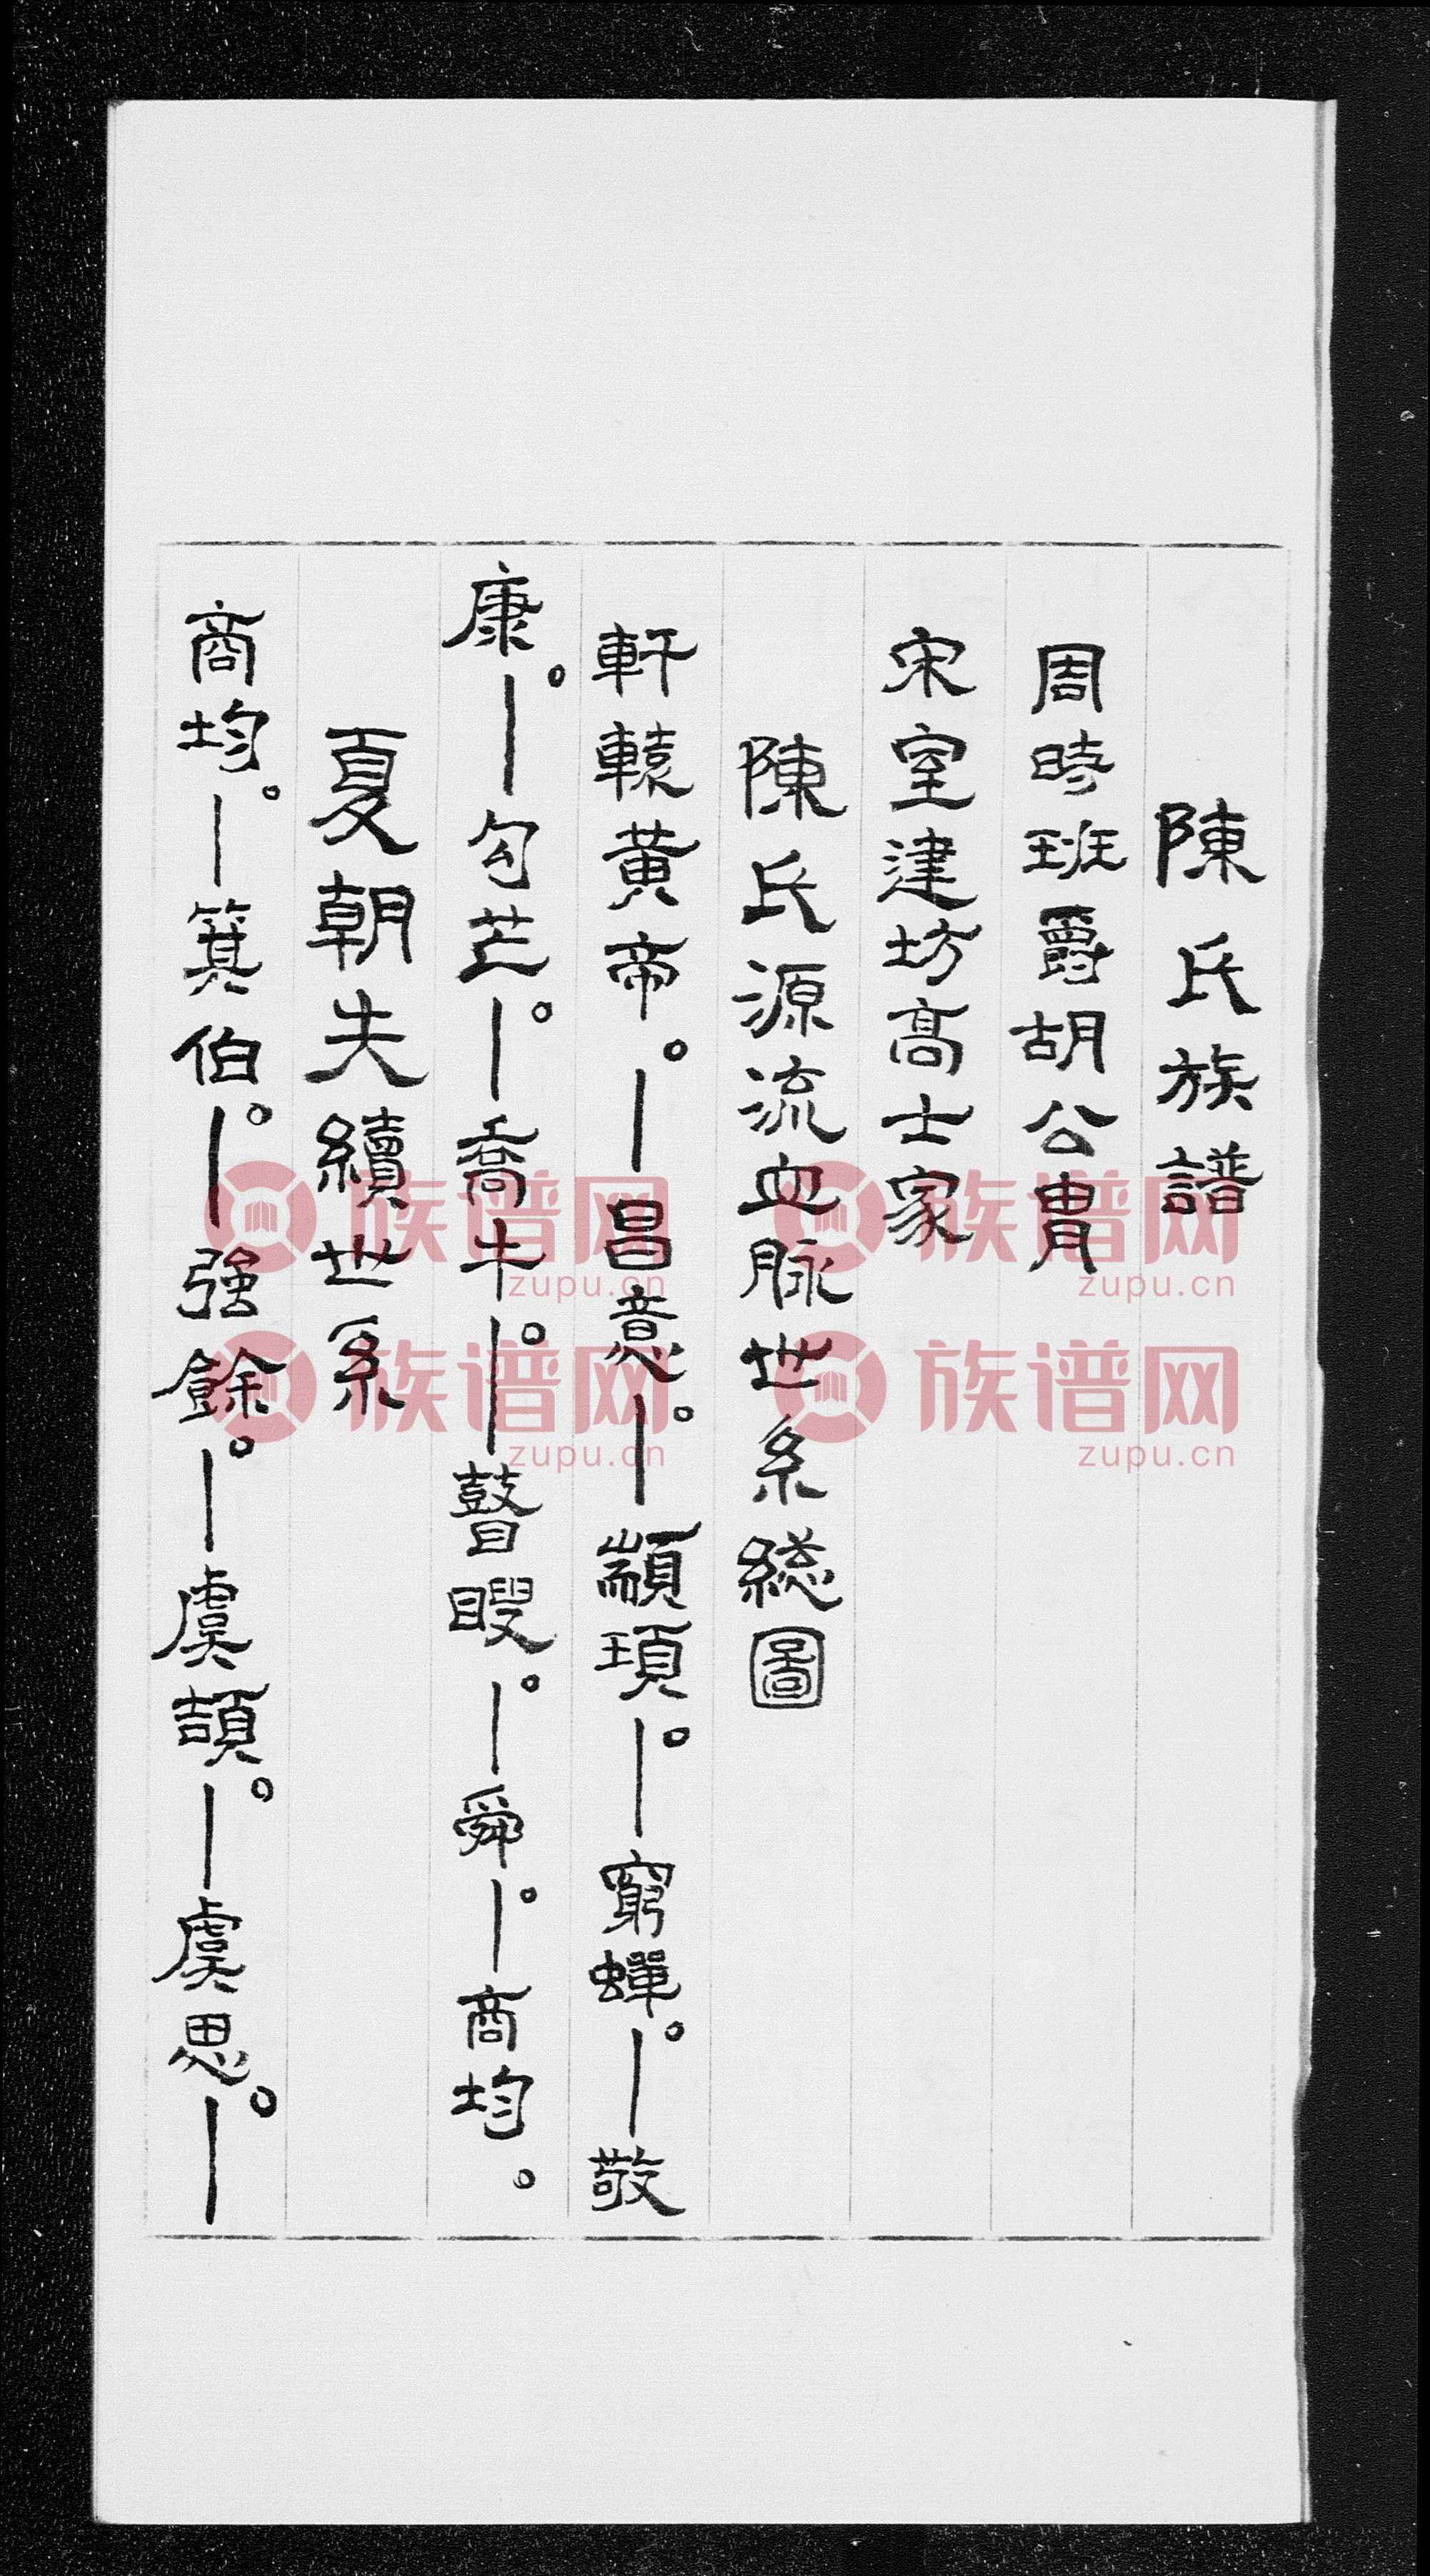 陳氏族譜
周時班爵胡公胄
宋室建坊高士家
陳氏源流血脉世系総圖
軒轅黃帝。—昌意。—顓頊。—窮蟬。—敬
康。—勾芒。—喬牛。—瞽瞍。—舜。—商均。
夏朝夫續世系
商均。—箕伯。—强餘。—虞頡。—虞思。—
族谱网
zupu.cn
族谱网
zupu.cn
族谱网
zupu.cn
族谱网
zupu.cn